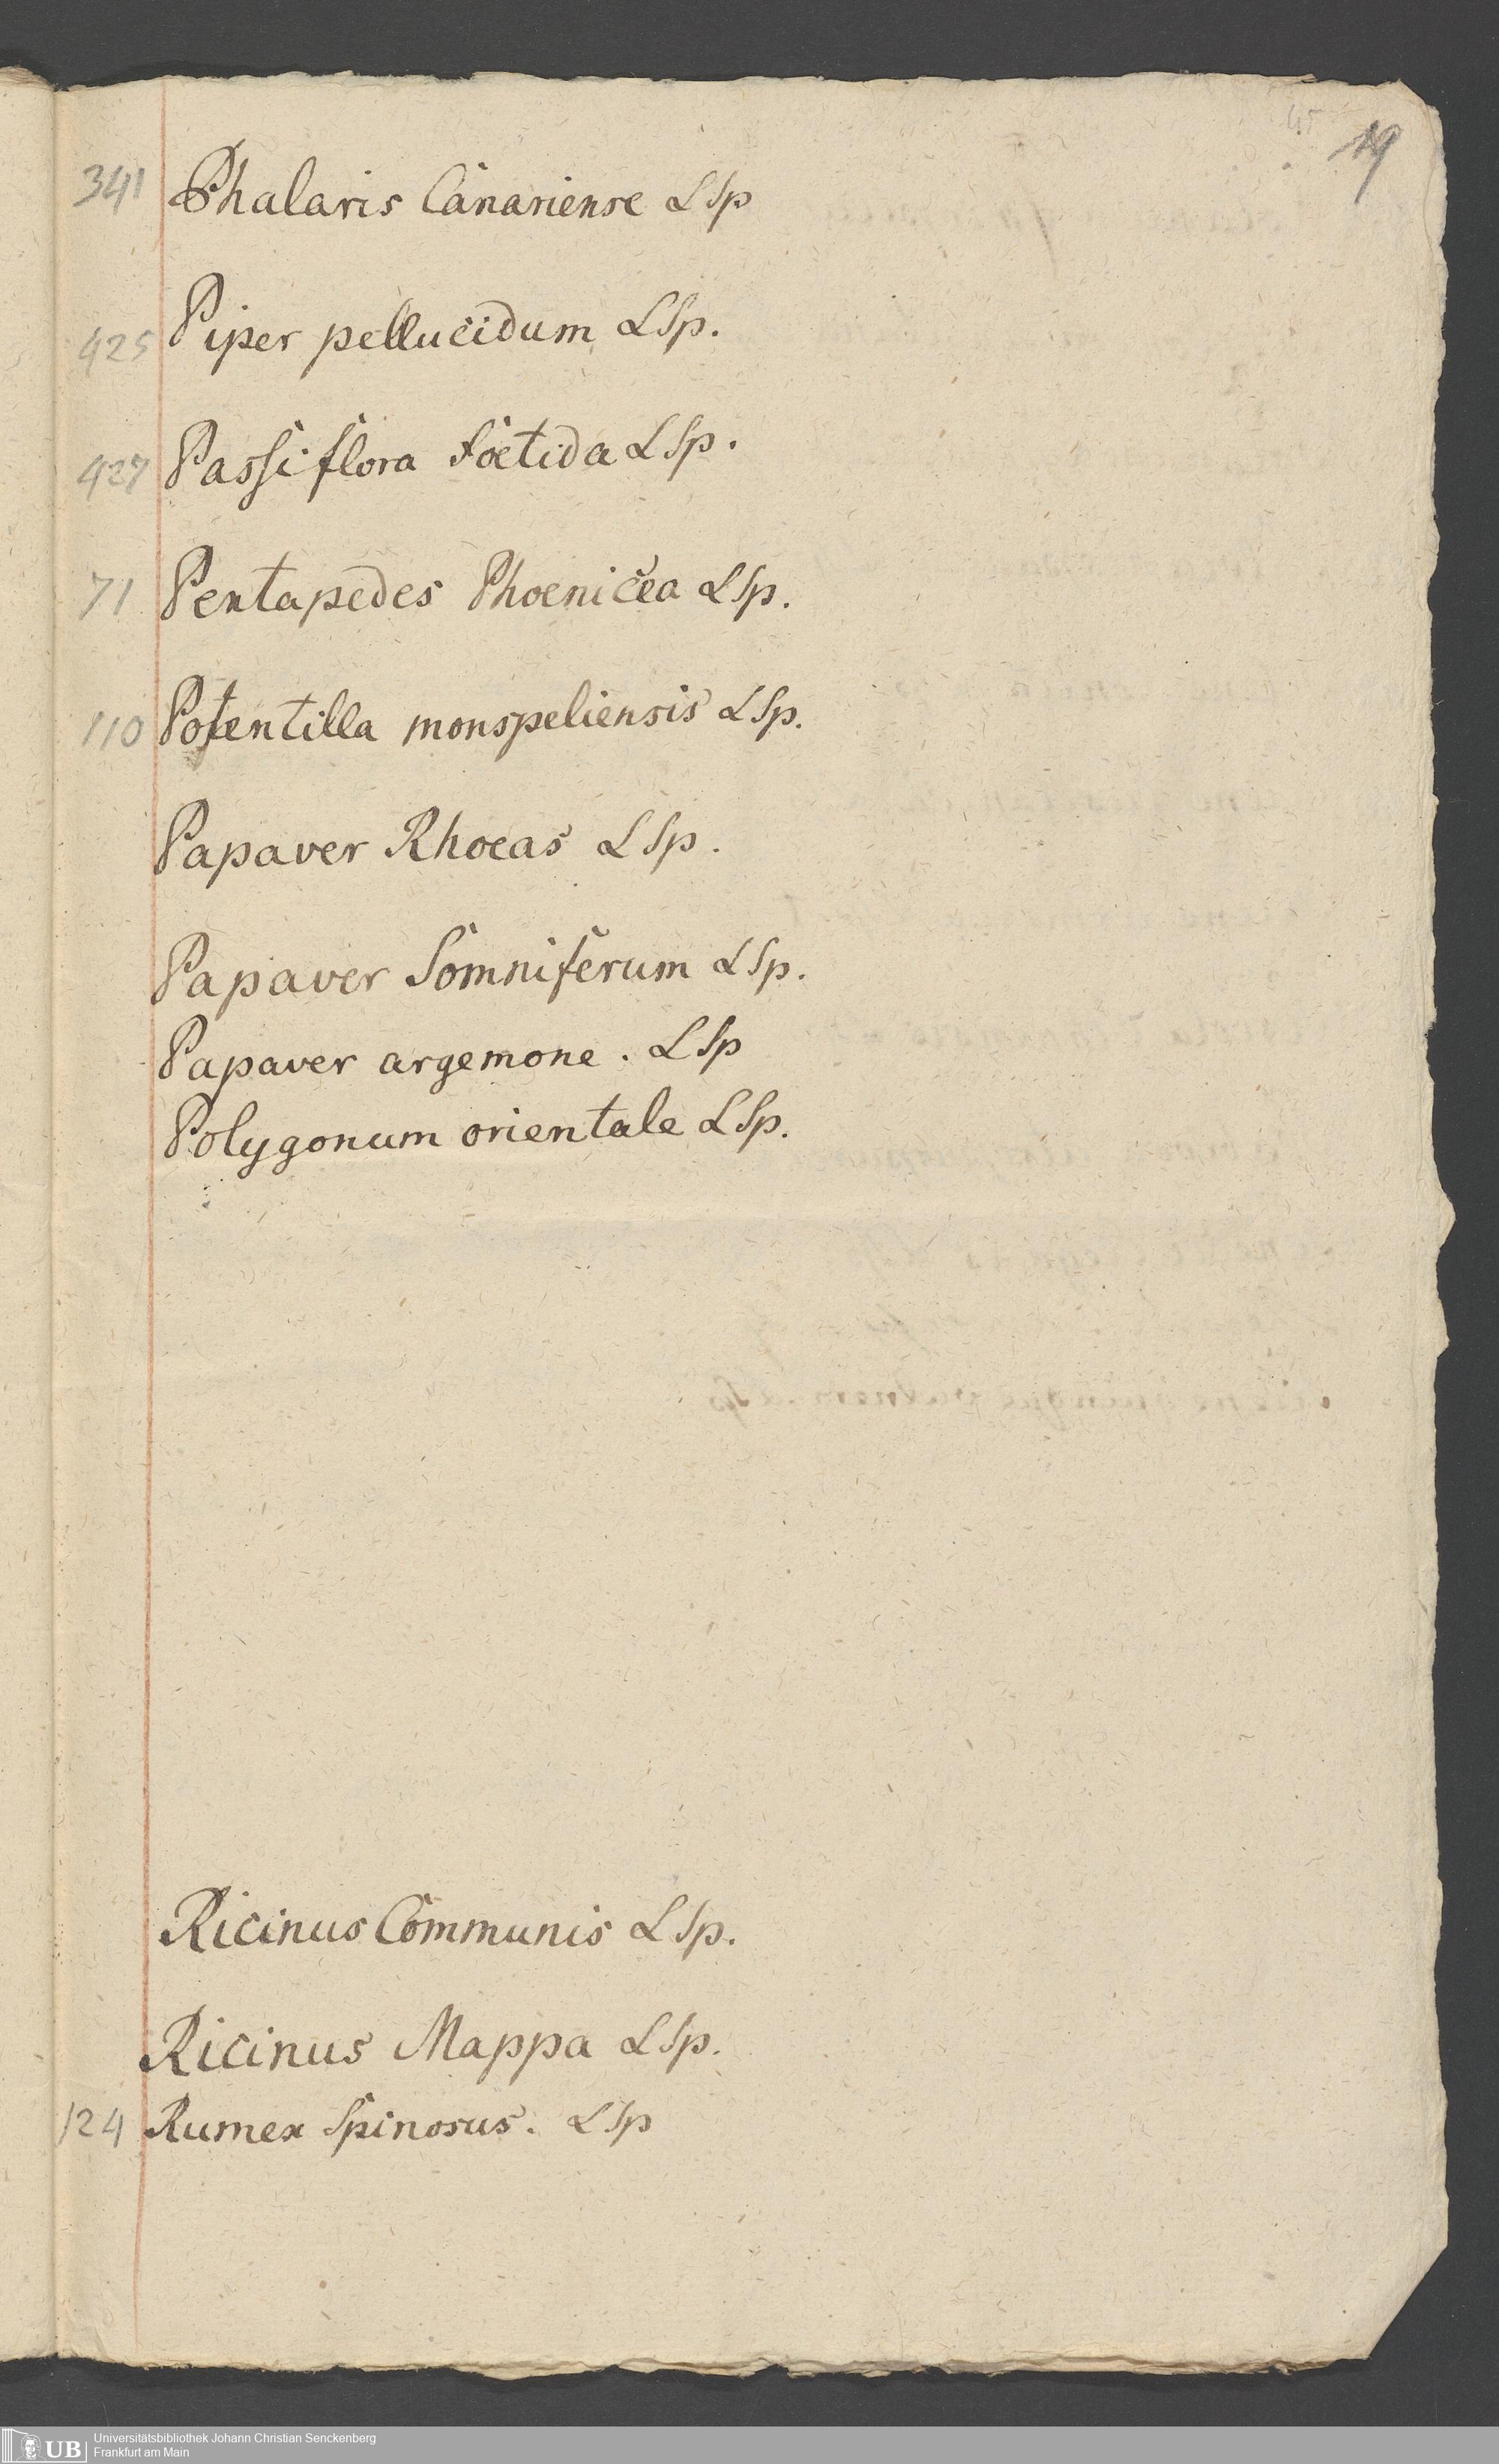 45
19
341 Phalaris Canariense LSp
425 Piper pellucidum LSp.
427 Passiflora foetida LSp.
71 Pentapedes Phoenicea LSp.
110 Potentilla monspeliensis LSp.
Papaver Rhoeas LSp.
Papaver Somniferum LSp.
Papaver argemone. LSp
Polygonum orientale LSp.
Ricinus Communis LSp.
Ricinus Mappa LSp.
124 Rumex Spinosus. LSp
UB Universitätsbibliothek Johann Christian Senckenberg
Frankfurt am Main